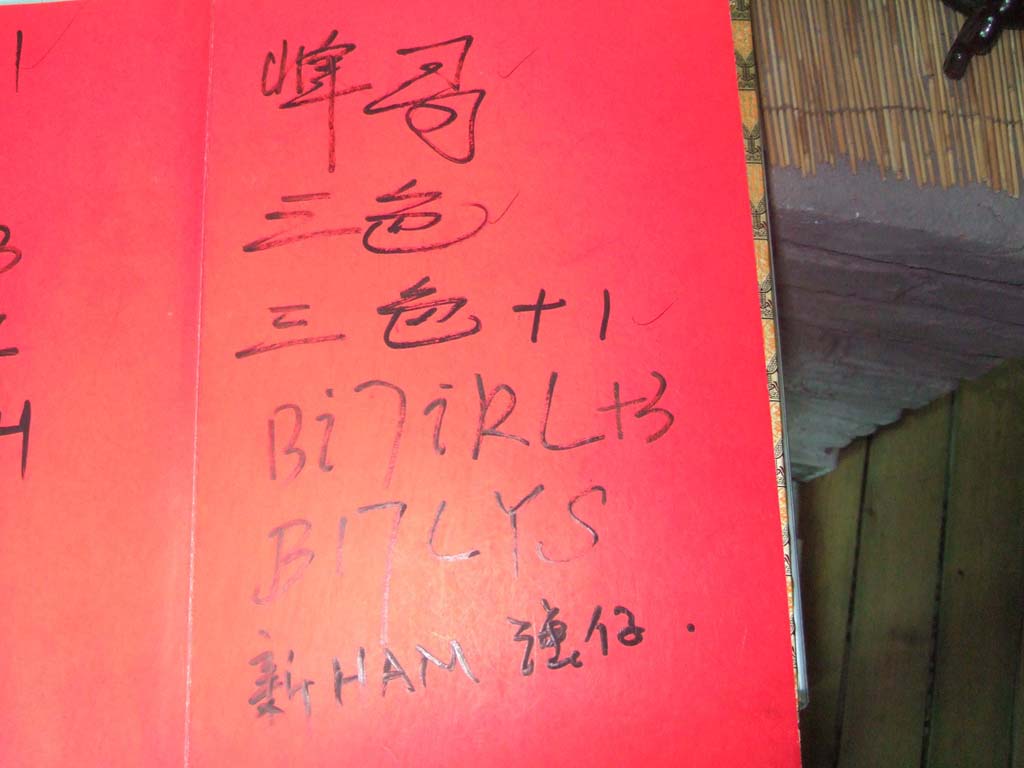 1
峰哥
三色
三色+1
Bi7iRL+3
BI7LYS
新HAM 強仔.
3
4